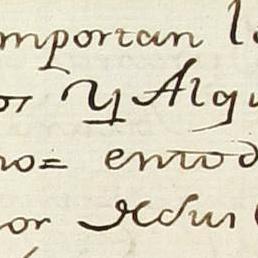 mportan l
or y Algu
no= entod
or